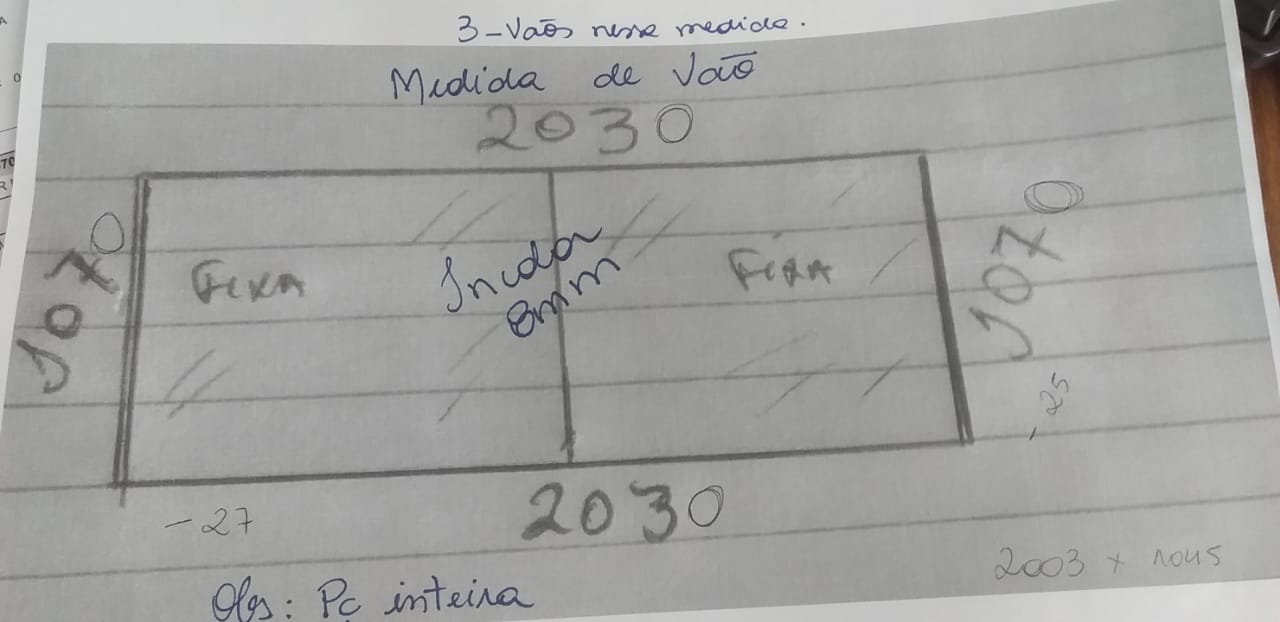 3-Vaõs nesse medida.
Medida de Vaõ
2030
1070
1070
Fixa
Incolor
8mm
Fixa
-25
2030
-27
2003 x 1045
Obs: Pç inteira